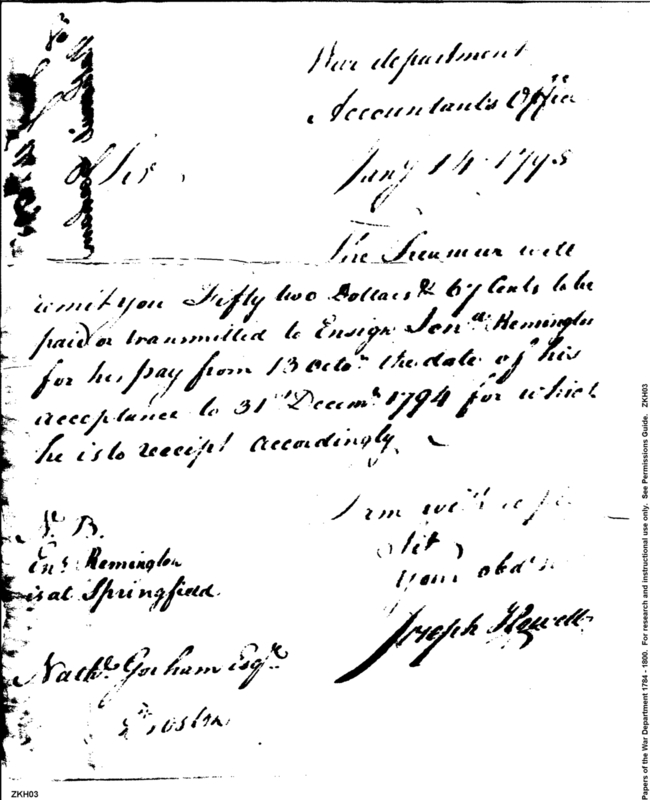 War department
Accountants Office
Jany 14 1795
Sir,
The Treasurer will
remit you Fifty two Dollars & 67 Cents to be
paid or transmitted to Ensign Jonan. Remington
for his pay from 13 Octor. the date of his
acceptance to 31st Decemr. 1794 for which
he is to receipt accordingly.
I am with
Sir
Your obdt
Joseph Howell
N. B.
Ens. Remington
is at Springfield.
Nathl. Gorham Esqr.
Boston
ZKH03
Papers of the War Department 1784 - 1800. For research and instructional use only. See Permissions Guide. ZKH03